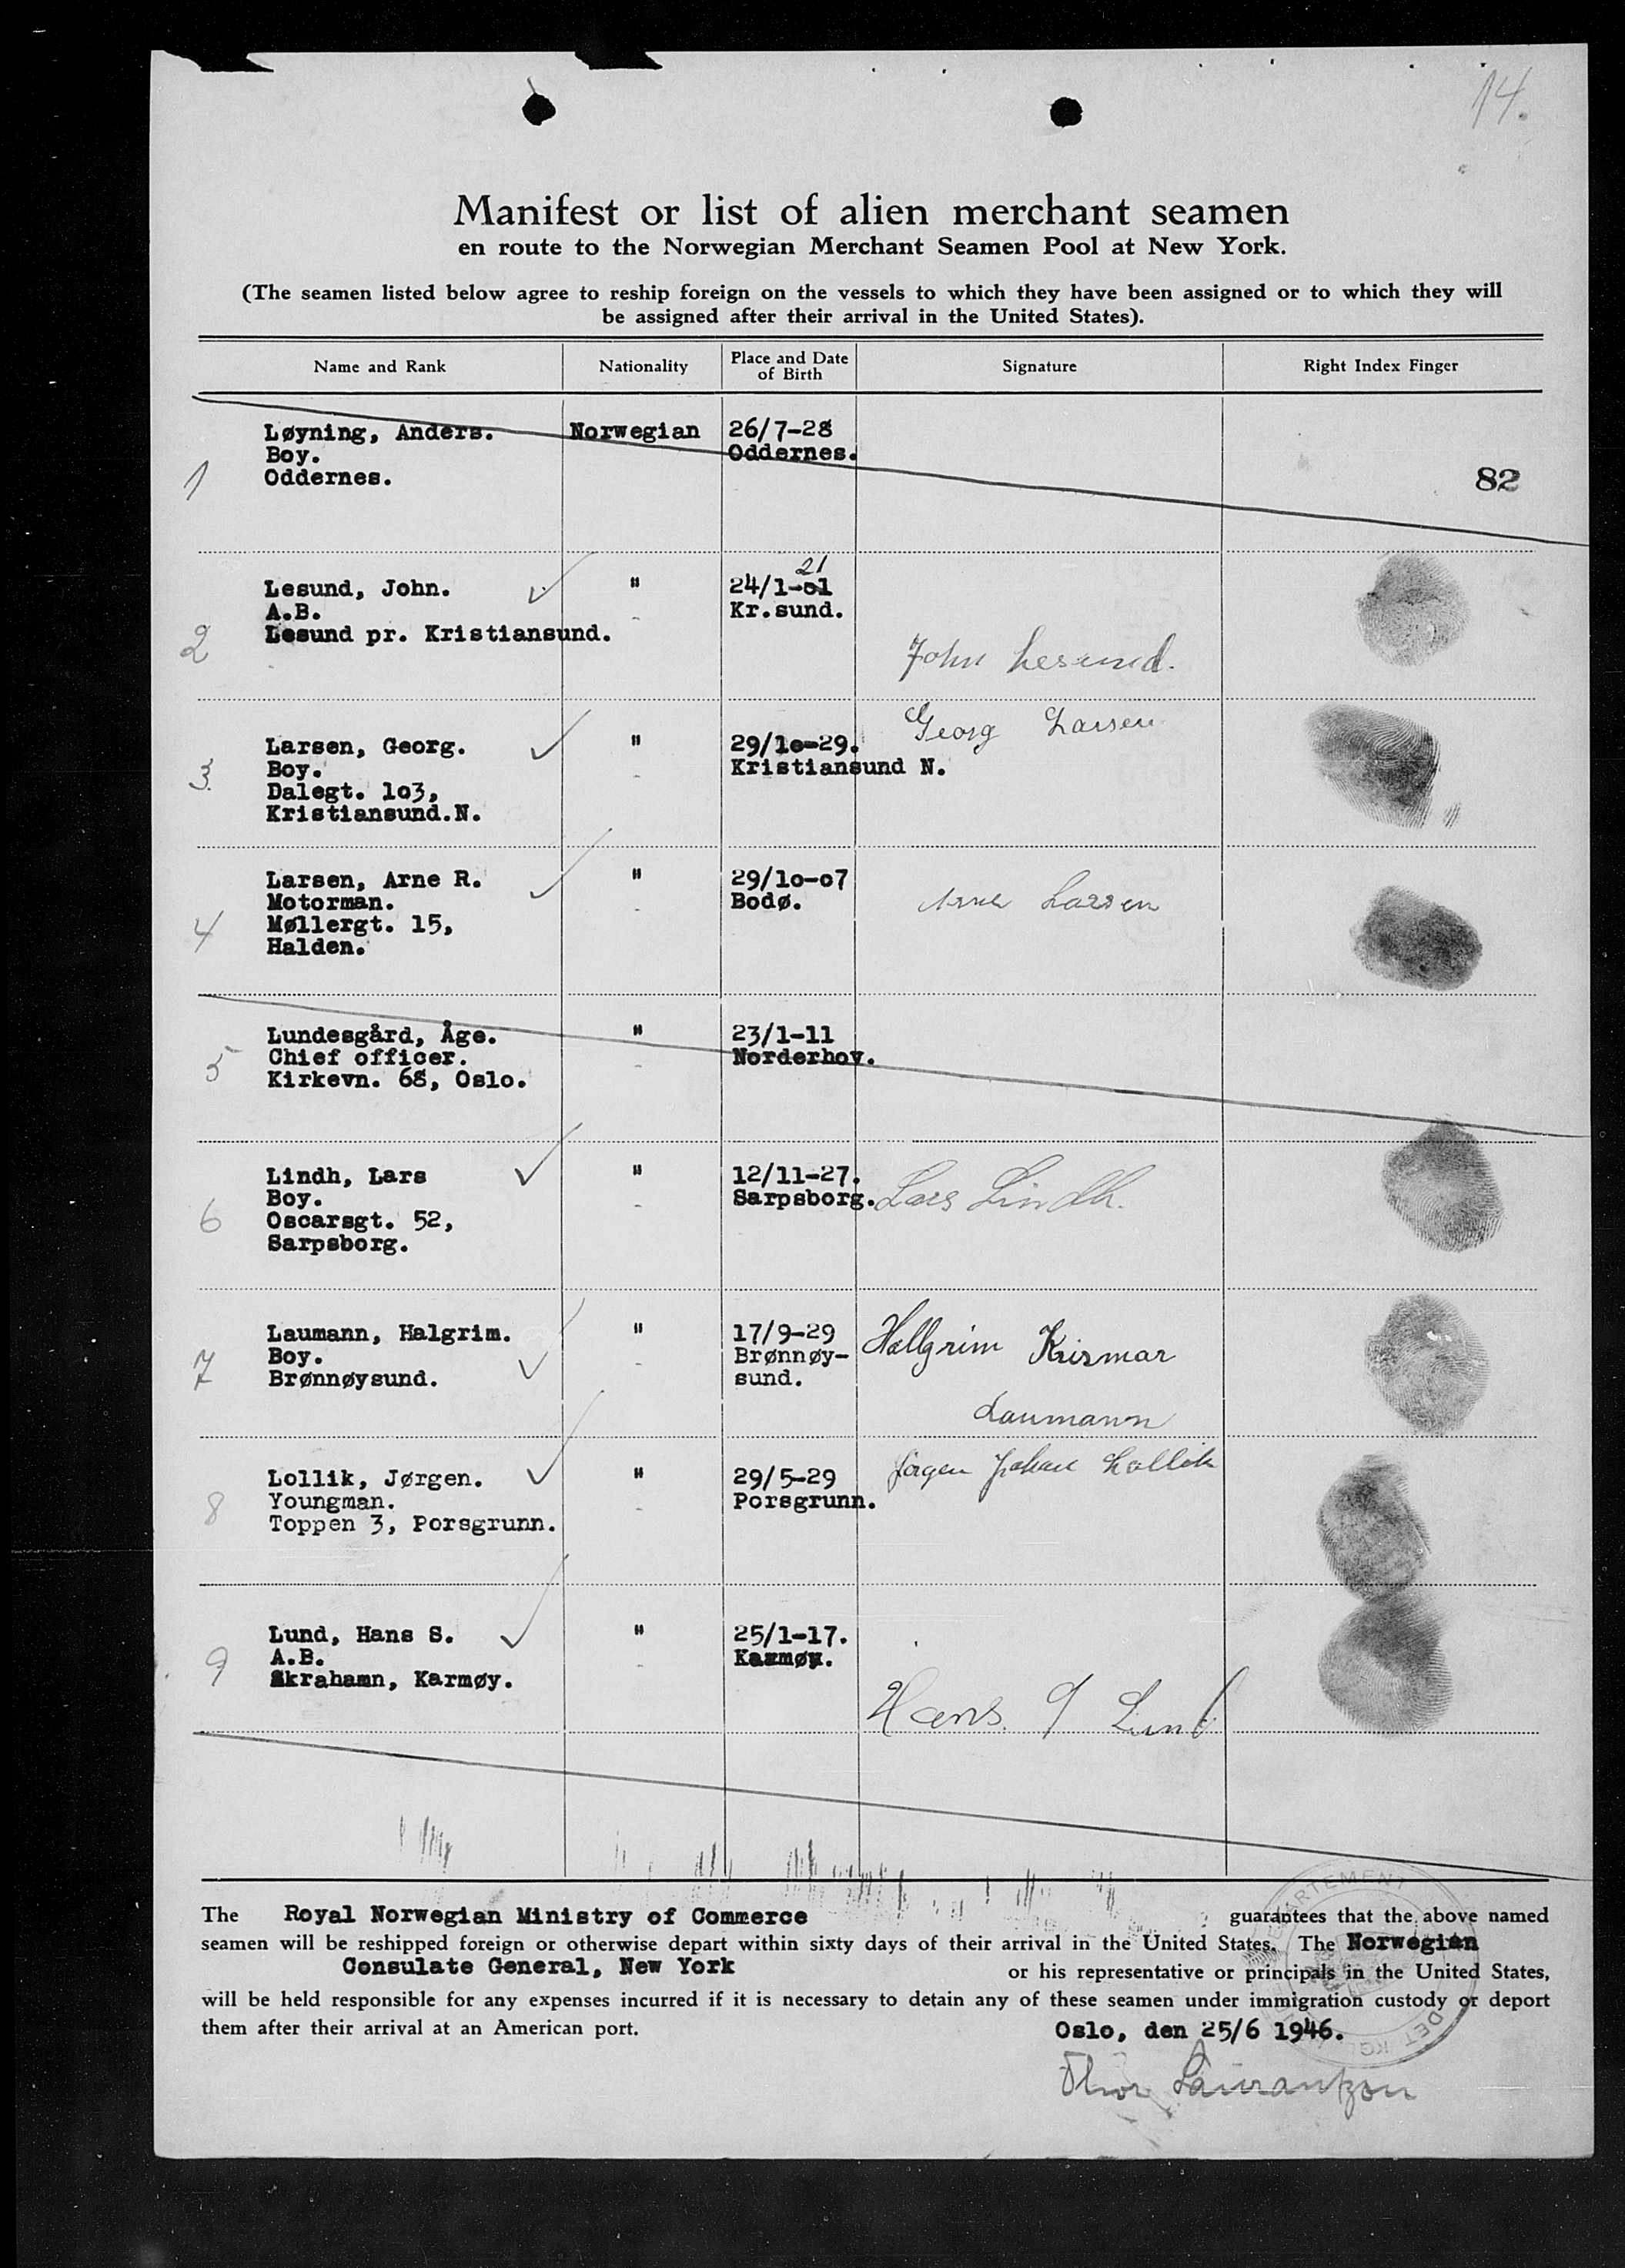 14.
Manifest or list of alien merchant seamen
en route to the Norwegian Merchant Seamen Pool at New York.
(The seamen listed below agree to reship foreign on the vessels to which they have been assigned or to which they will
be assigned after their arrival in the United States).
Name and Rank Nationality Place and Date of Birth Signature Right Index Finger
1 Løyning, Anders. Norwegian 26/7-28
Boy. Oddernes.
Oddernes. 82
21
2 Lesund, John. " 24/1-01
A.B. Kr.sund.
Lesund pr. Kristiansund.
John Lesund.
Georg Larsen
3 Larsen, Georg. " 29/1o-29.
Boy. Kristiansund N.
Dalegt. 1o3,
Kristiansund.N.
4 Larsen, Arne R. " 29/1o-o7
Motorman. Bodø. Arne Larsen
Møllergt. 15,
Halden.
5 Lundesgård, Åge. " 23/1-11
Chief officer. Norderhov.
Kirkevn. 68, Oslo.
6 Lindh, Lars " 12/11-27.
Boy. Sarpsborg. Lars Lindh.
Oscarsgt. 52,
Sarpsborg.
7 Laumann, Halgrim. " 17/9-29 Hallgrim
Boy. Brønnøy-
Brønnøysund. sund.
Laumann
Jørgen Johan Lollik
8 Lollik, Jørgen. " 29/5-29
Youngman. Porsgrunn.
Toppen 3, Porsgrunn.
9 Lund, Hans S. " 25/1-17.
A.B. Karmøy.
Åkrahamn, Karmøy.
Hans S Lund
The Royal Norwegian Ministry of Commerce guarantees that the above named
seamen will be reshipped foreign or otherwise depart within sixty days of their arrival in the United States. The Norwegian
Consulate General, New York or his representative or principals in the United States,
will be held responsible for any expenses incurred if it is necessary to detain any of these seamen under immigration custody or deport
them after their arrival at an American port.
Oslo, den 25/6 1946.
Thor Laurantzon